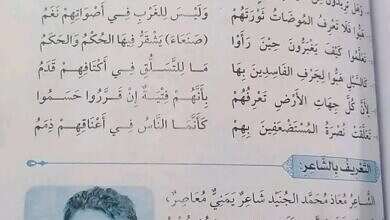 هَبُّوا فَلَا تَعْرِفُ المُوضَاتُ ثَوْرَتَهُمْ وَلَيْسَ لِلْغَرْبِ فِي أَصْوَاتِهِمْ نَغَمُ
تَعَلَّمُوا كَيْفَ يَغْبَرُّونَ حِيْنَ رَأَوْا (صَنْعَاءَ) يَشْقَرُّ فِيهَا الحُكْمُ وَالحَكَمُ
كَالسَّيْلِ هَبُّوا لِجَرْفِ الفَاسِدِينَ بِهَا مَا لِلتَّسَلُّقِ فِي أَكْتَافِهِمْ قَدَمُ
لِأَنَّ كُلَّ جِهَاتِ الأَرْضِ تَعْرِفُهُمْ بِأَنَّهُمْ فِتْيَةٌ إِنْ قَرَّرُوا حَسَمُوا
تَعَلَّقَتْ نُصْرَةُ المُسْتَضْعَفِينَ بِهِمْ كَأَنَّمَا النَّاسُ فِي أَعْنَاقِهِمْ ذِمَمُ
التَّعْرِيفُ بِالشَّاعِرِ:
الشَّاعِرُ مُعَاذ مُحَمَّد الجُنَيْد شَاعِرٌ يَمَنِيٌّ مُعَاصِرٌ،